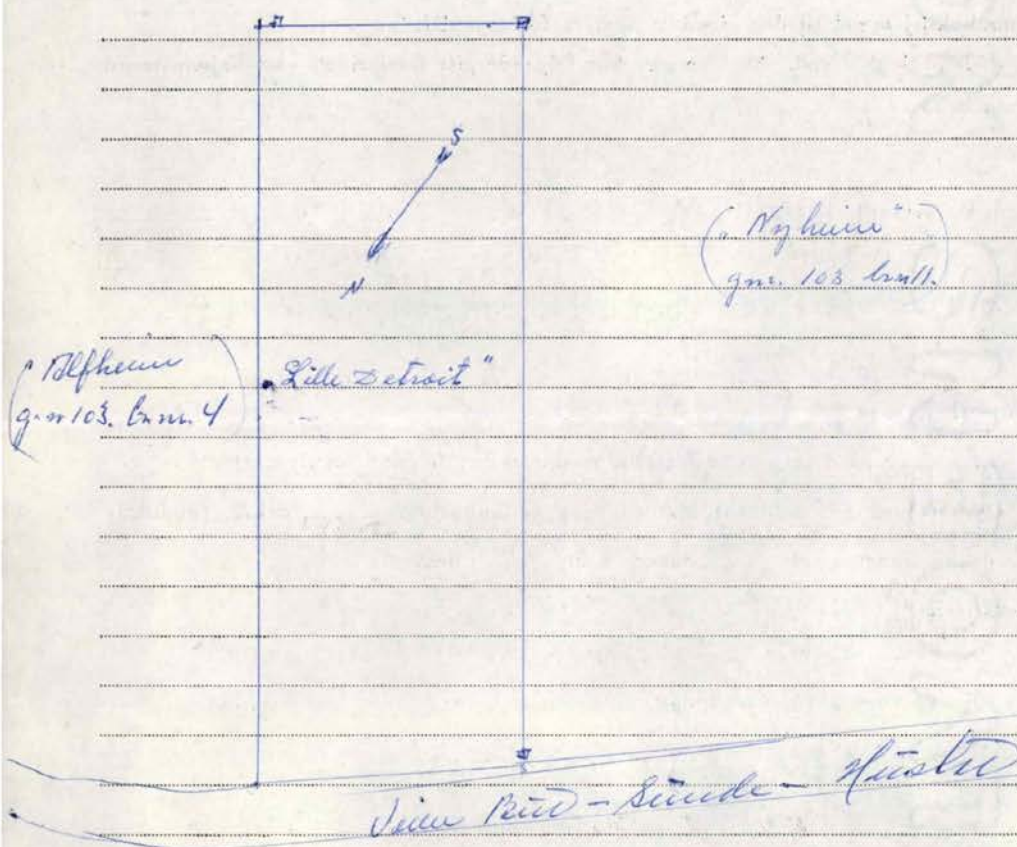 S
N
"Nyheim"
gnr. 103 bnr 11.
Alfheim
gnr 103. bnr. 4
"Lille Detroit"
Veien Bud - Sunde - Hustad